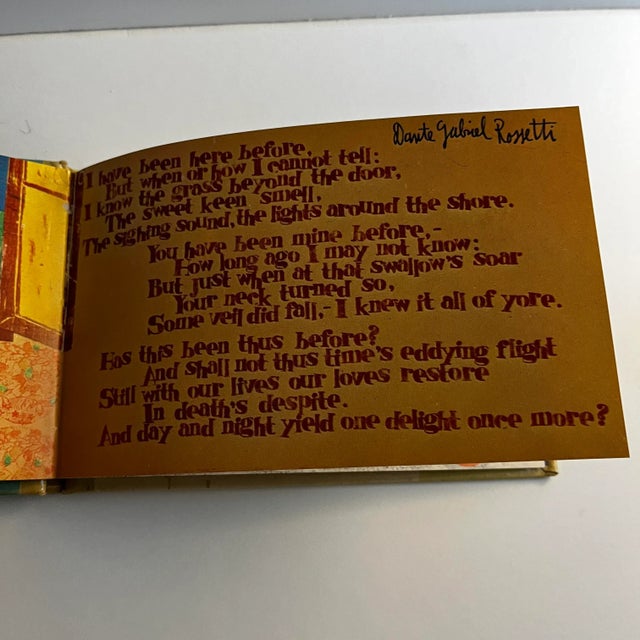 Dante Gabriel Rossetti
I have been here before,
But when or how I cannot tell:
I know the grass beyond the door,
The sweet keen smell,
The sighing sound, the lights around the shore.
You have been mine before,-
How long ago I may not know:
But just when at that swallow's soar
Your neck turned so,
Some veil did fall,- I knew it all of yore.
Has this been thus before?
And shall not thus time's eddying flight
Still with our lives our loves restore
In death's despite.
And day and night yield one delight once more?